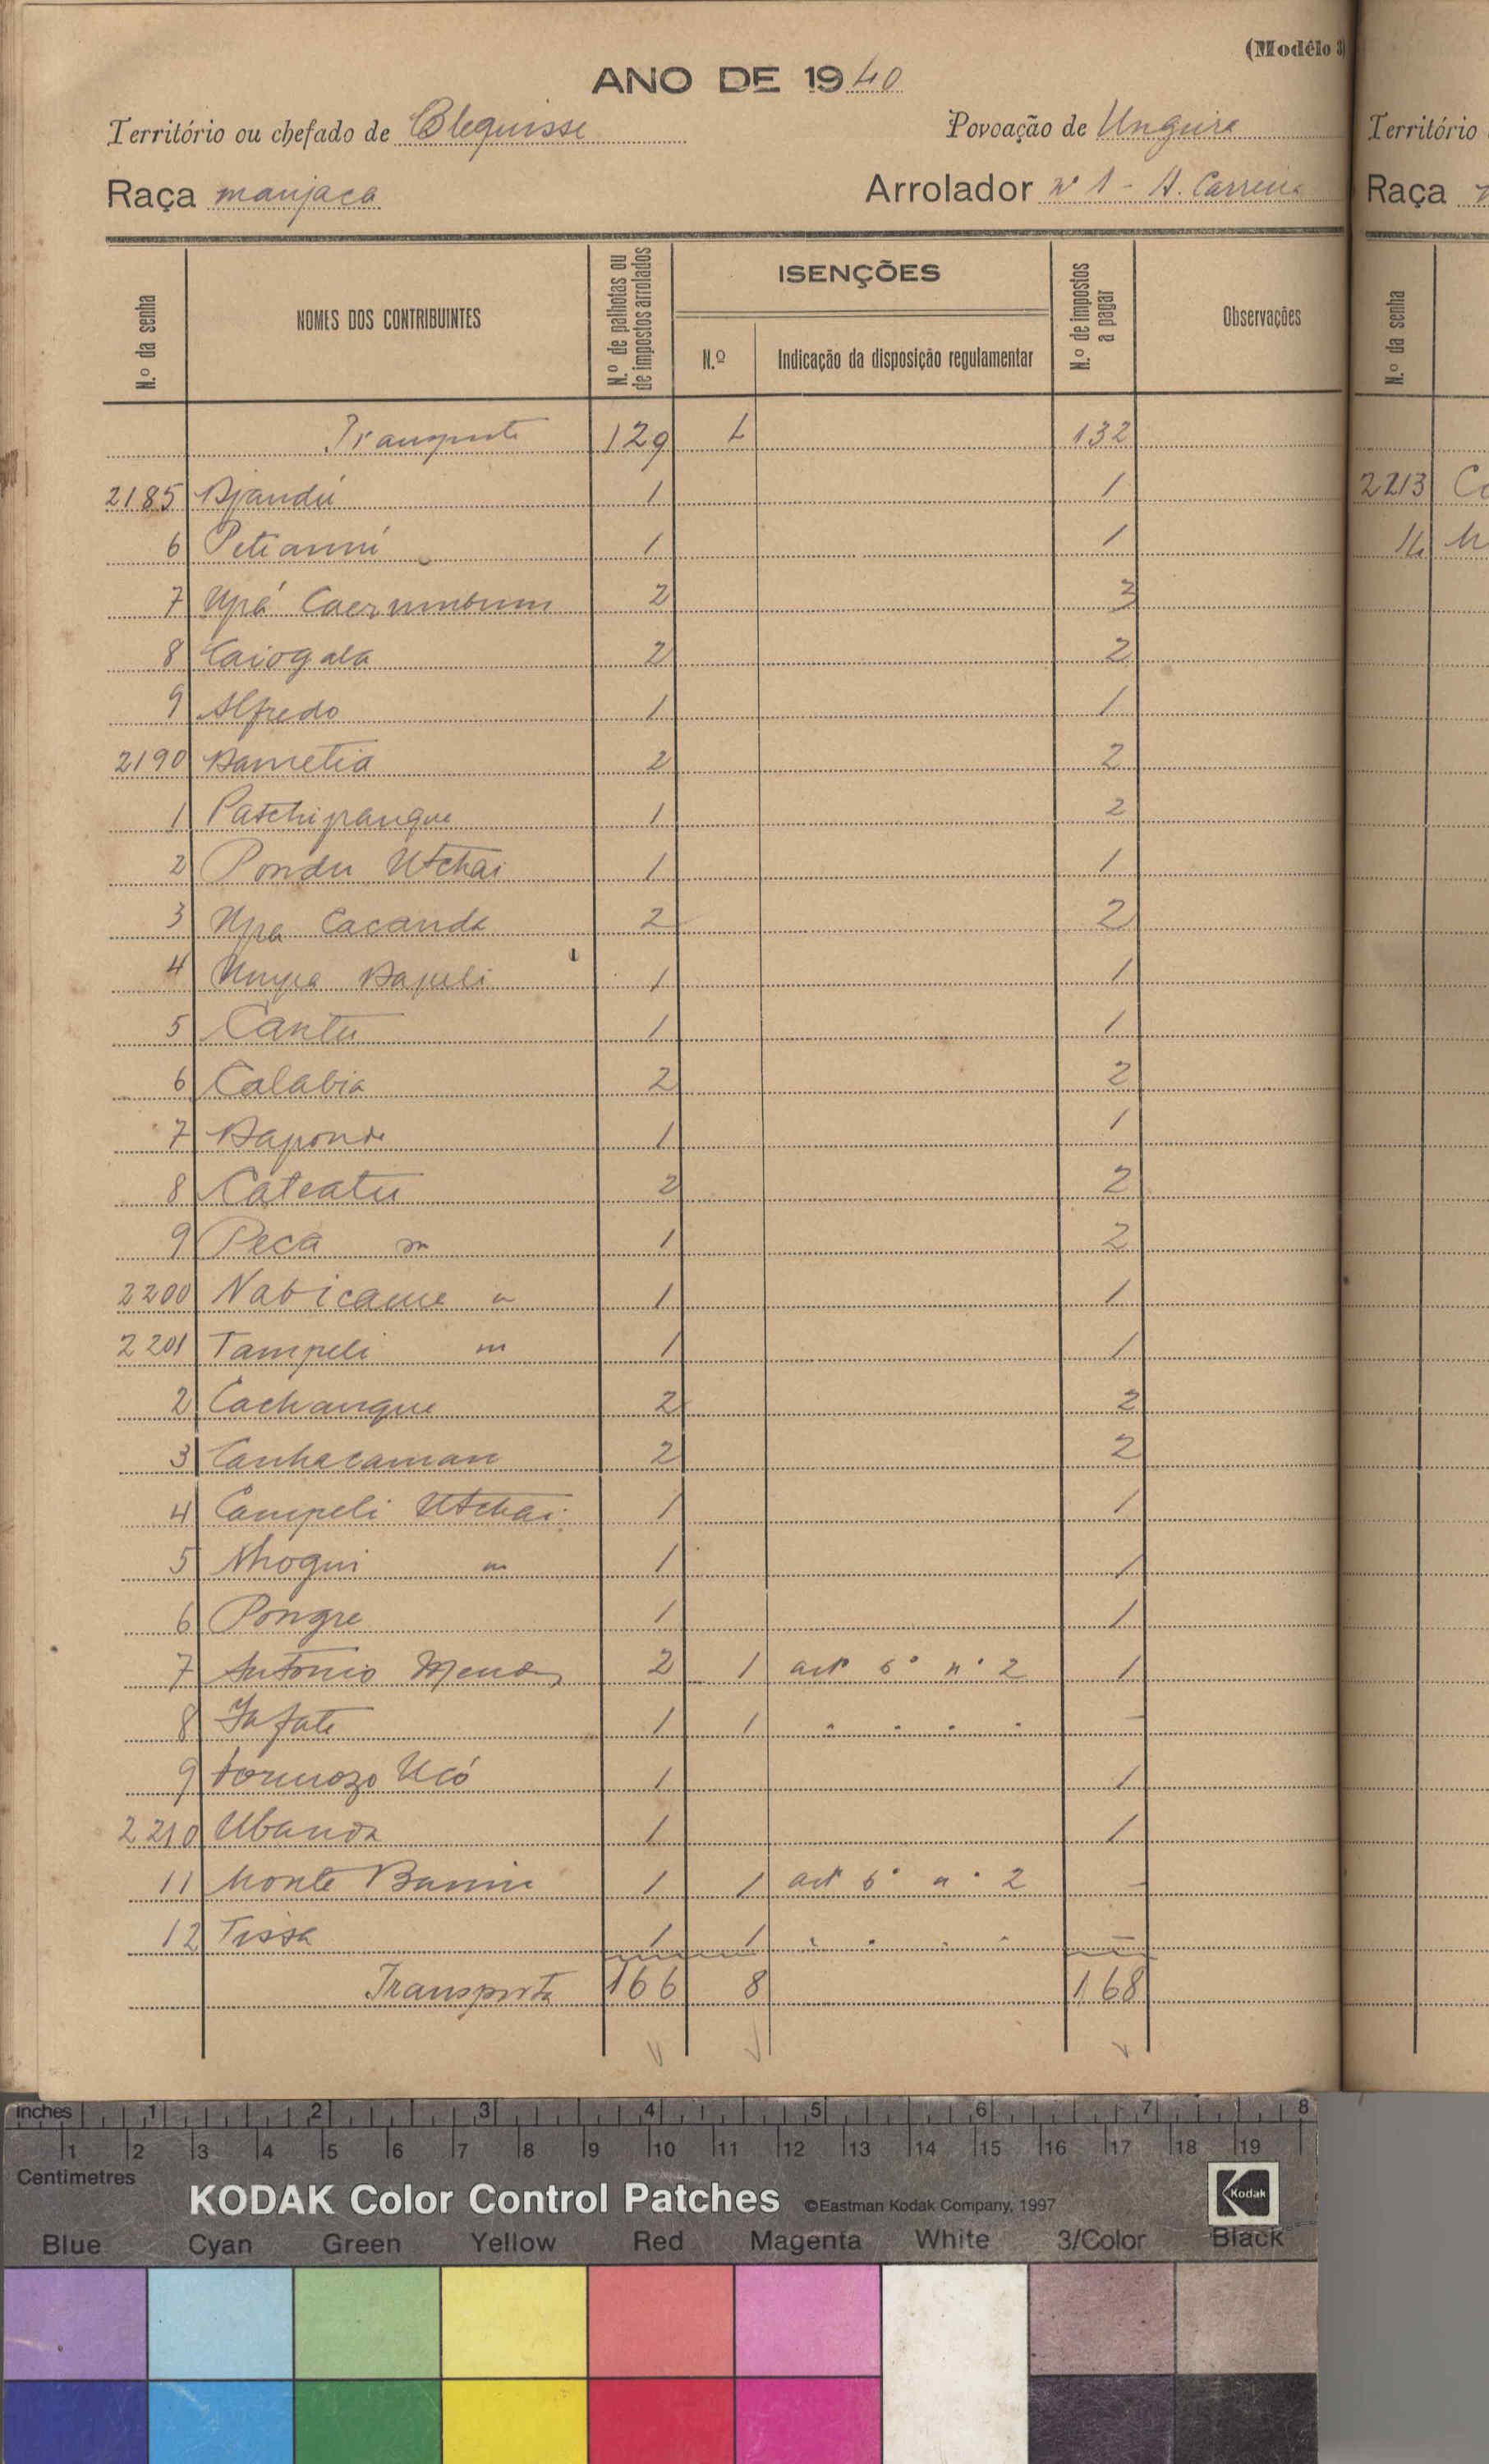 (Modêlo 3)
ANO DE 1940
Território ou chefado de Blequisse
Povoação de Unguira
Raça manjaca
Arrolador nº 1 - A. Carreira
N.º da senha
NOMES DOS CONTRIBUINTES
N.º de palhotas ou de impostos arrolados
ISENÇÕES
N.º
Indicação da disposição regulamentar
N.º de impostos a pagar
Observações
Transporte 129 4 132
2185 Djandú 1 1
6 1 1
7 Upá 2 3
8 Caiogala 2 2
9 Alfredo 1 1
2190 Dametia 2 2
1 Patchipangue 1 2
2 Pondu Utchai 1 1
3 Upa Cacanda 2 2
4 Umpa Dapeli 1 1
5 Cantu 1 1
6 Calabia 2 2
7 Daponde 1 1
8 Cateatu 2 2
9 Peca m 1 2
2200 Nabicame " 1 1
2201 Tampeli m 1 1
2 Cachangue 2 2
3 Canhacaman 2 2
4 Campeli Utchai 1 1
5 Nhogui m 1 1
6 Pongre 1 1
7 Antonio Mendes 2 1 artº 6º nº 2 1
8 Jafate 1 1 " " " " -
9 Formozo Ucó 1 1
2210 Ubanda 1 1
11 Monte Bamin 1 1 artº 6º nº 2 -
12 Tissa 1 1 " " " " -
Transporta 166 8 168
Território
Raça
N.º da senha
2213
14
inches 1 2 3 4 5 6 7 8
1 2 3 4 5 6 7 8 9 10 11 12 13 14 15 16 17 18 19
Centimetres
KODAK Color Control Patches ©Eastman Kodak Company, 1997 Kodak
Blue Cyan Green Yellow Red Magenta White 3/Color Black